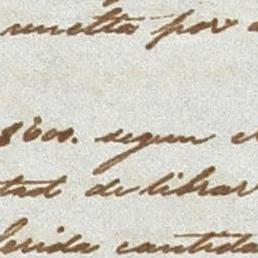 unetta por
8000. segun e
tad de librar
ferida cantida